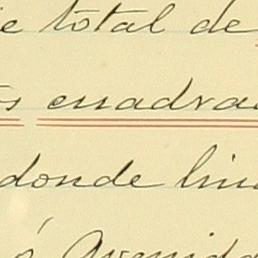 e total de
s cuadrad
donde lin
ó Avenida